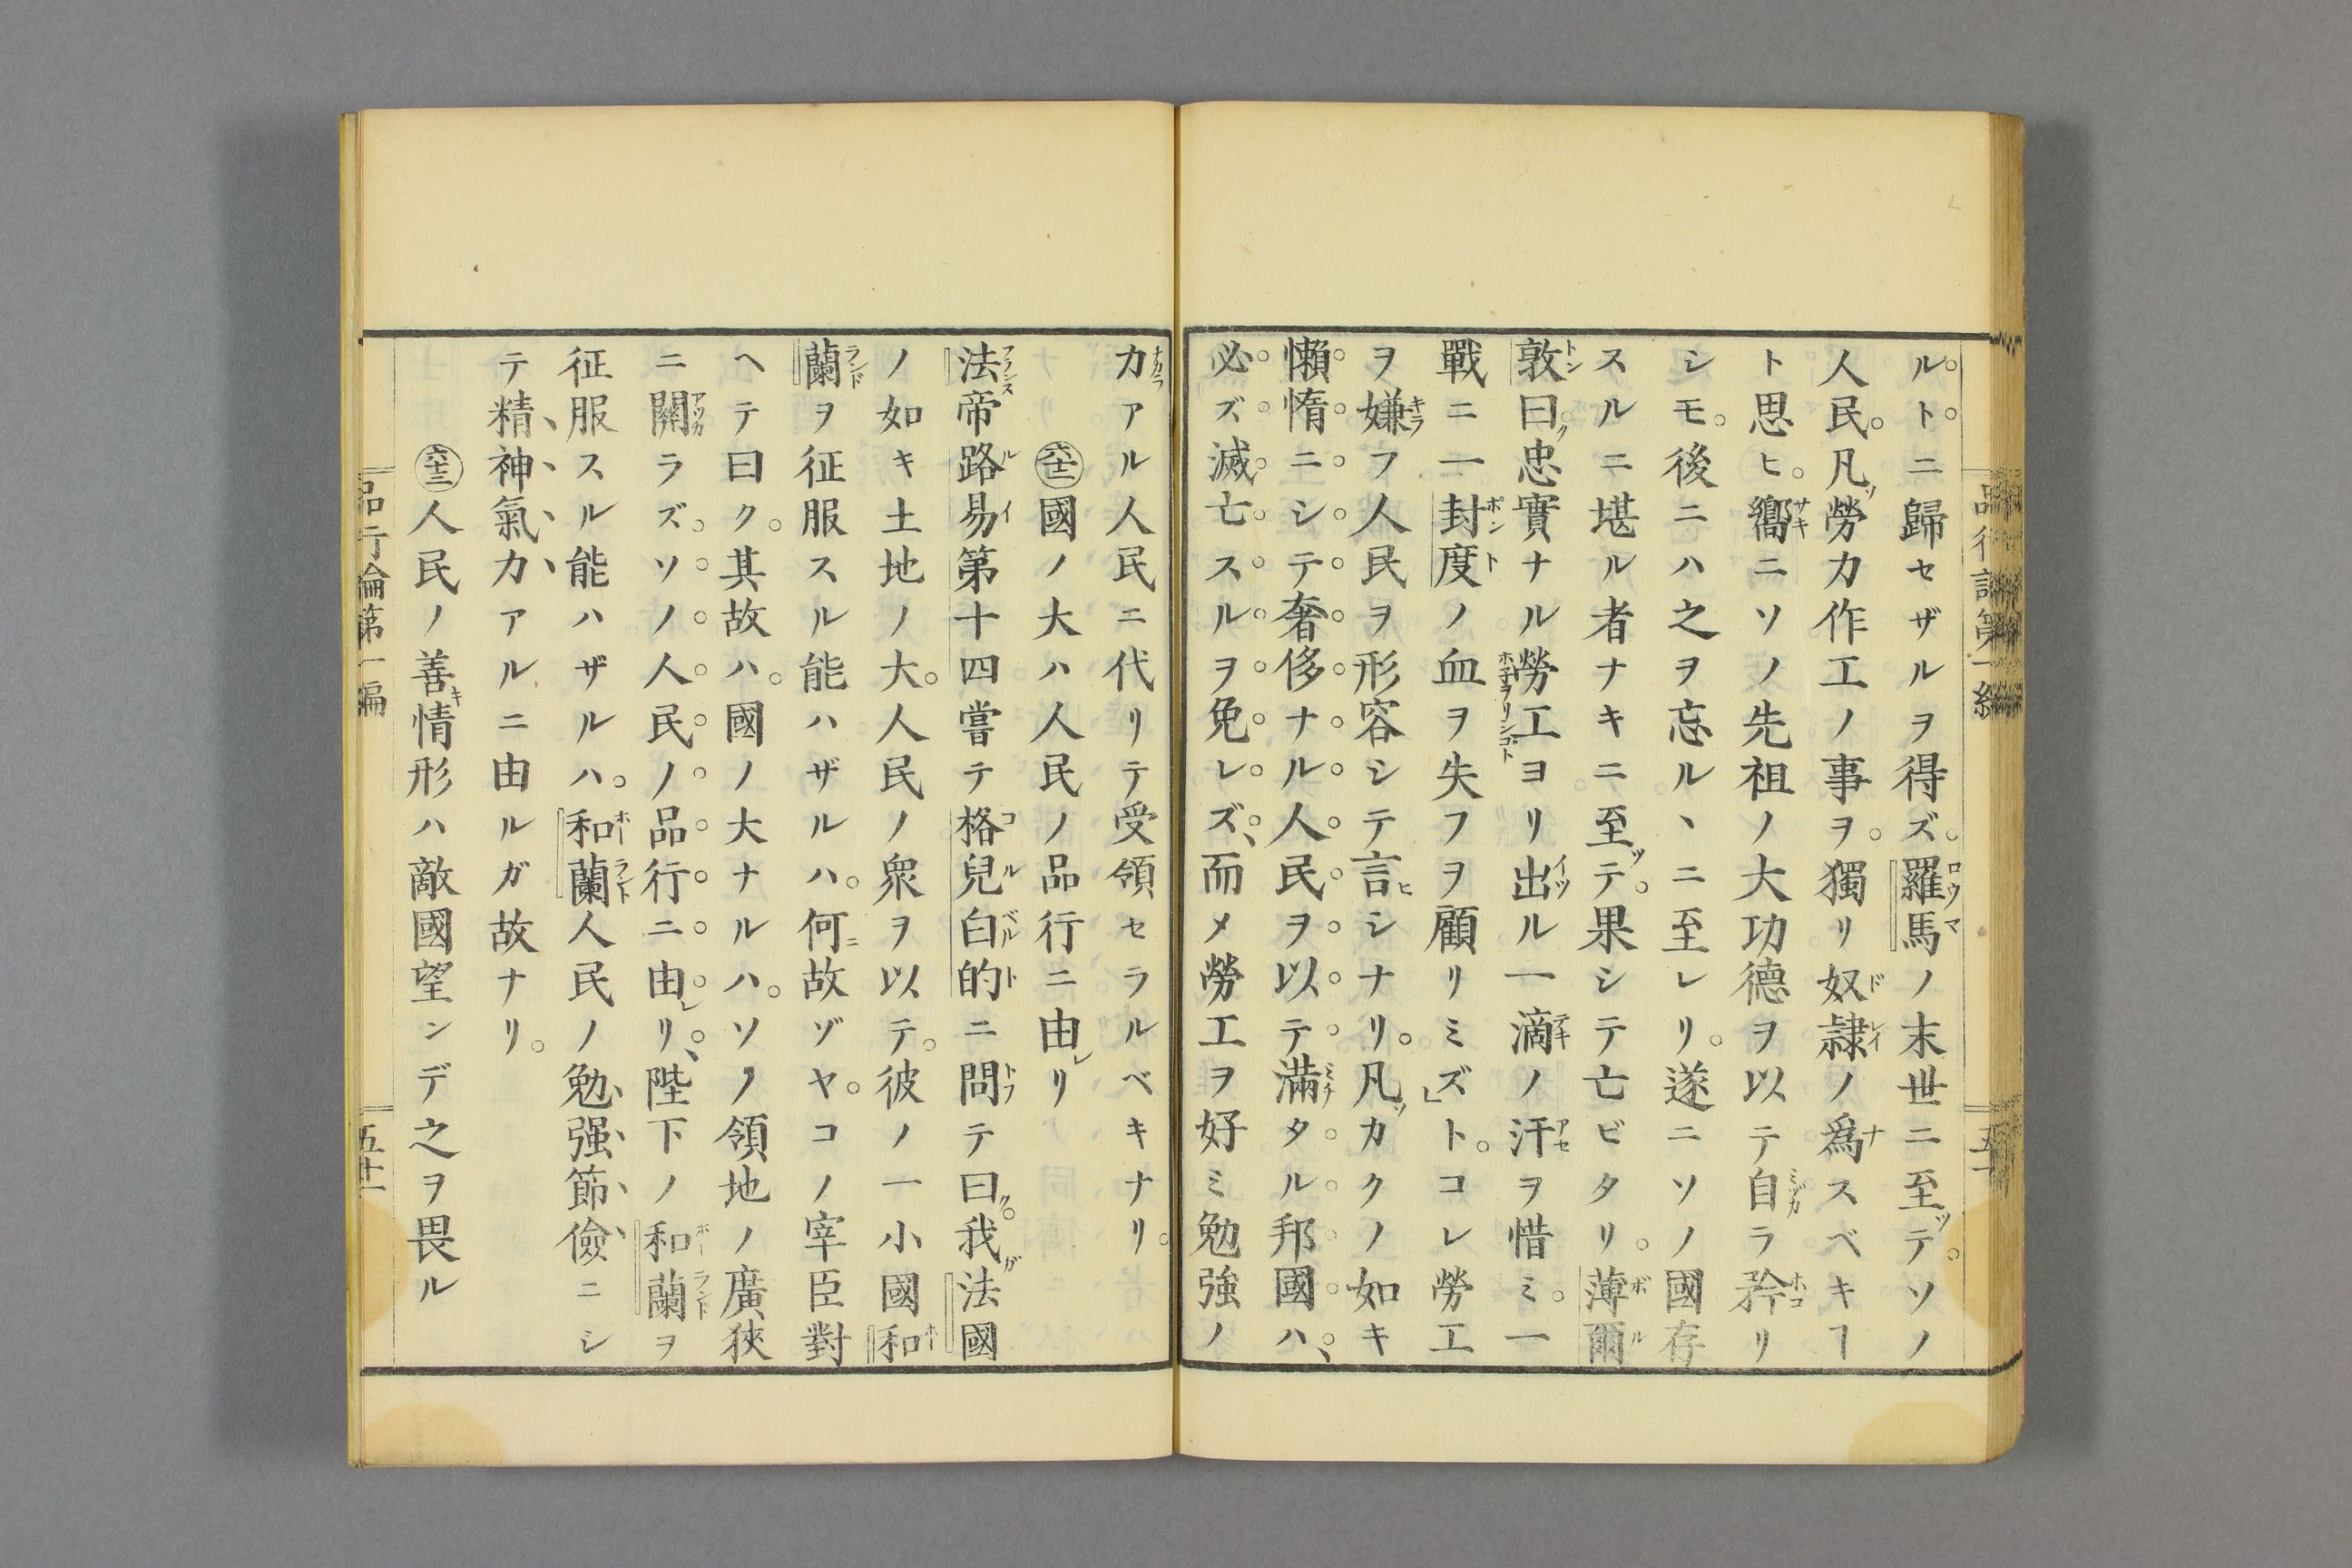 ルトニ歸セザルヲ得ズ。羅馬ノ末世ニ至ツテ。ソノ
人民。凡ソ勞力作工ノ事ヲ。獨リ奴隷ノ爲スベキヿ
ト思ヒ。嚮ニソノ先祖ノ大功德ヲ以テ自ラ矜リ
シモ。後ニハ之ヲ忘ルヽニ至レリ。遂ニソノ國存
スルニ堪ル者ナキニ至ツテ。果シテ亡ビタリ。薄爾
敦曰ク。忠實ナル勞工ヨリ出ル一滴ノ汗ヲ惜ミ。一
戰ニ一封度ノ血ヲ失フヲ顧リミズ」ト。コレ勞工
ヲ嫌フ人民ヲ形容シテ言ヒシナリ。凡ソカクノ如キ
懶惰ニシテ奢侈ナル人民ヲ以テ滿タル邦國ハ、
必ズ滅亡スルヲ免レズ、而メ勞工ヲ好ミ勉強ノ
力アル人民ニ代リテ受領セラルベキナリ。
㊅國ノ大ハ人民ノ品行ニ由レリ
法帝路易第十四嘗テ格兒白的ニ問テ曰ク。我ガ法國
ノ如キ土地ノ大。人民ノ衆ヲ以テ。彼ノ一小國和
蘭ヲ征服スル能ハザルハ。何ニ故ゾヤ。コノ宰臣對
ヘテ曰ク。其故ハ。國ノ大ナルハ。ソノ領地ノ廣狹
ニ關ラズソノ人民ノ品行ニ由レリ、陛下ノ和蘭ヲ
征服スル能ハザルハ。和蘭人民ノ勉强節儉ニシ
テ精神氣力アルニ由ルガ故ナリ。
六十三 人民ノ善キ情形ハ敵國望ンデ之ヲ畏ル
品行論第一編
五十一